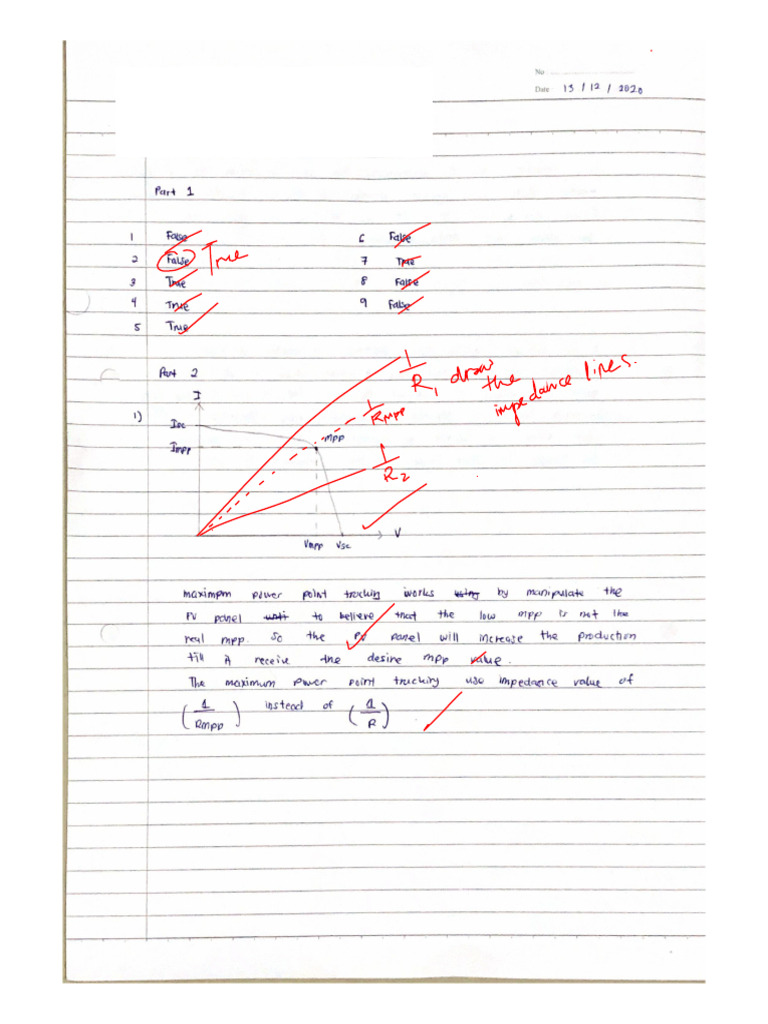 No :
Date : 13 / 12 / 2020
Part 1
1 False 6 False
2 False True 7 True
3 True 8 False
4 True 9 False
5 True
Part 2
1)
I
Isc
Impp
mpp
Vmpp Vsc
V
1/R1 draw the impedance lines.
1/Rmpp
1/R2
maximpm power point trecking works using by manipulate the
PV panel until to believe that the low mpp is not the
real mpp. So the PV panel will increase the production
till it receive the desire mpp value.
The maximum power point trucking use impedance value of
(1/Rmpp) instead of (1/R)